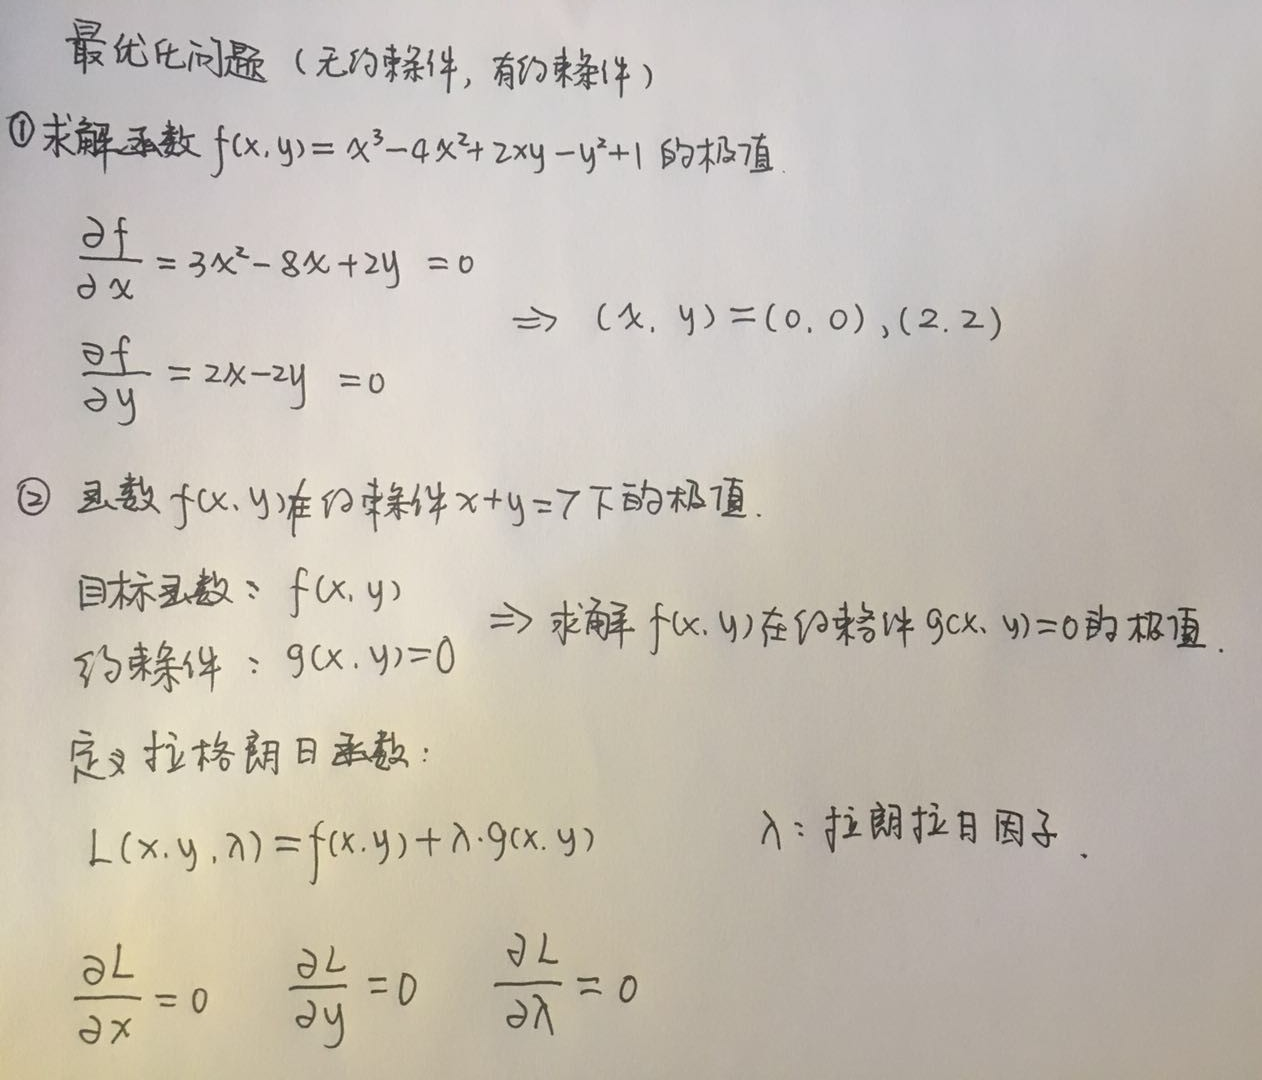 最优化问题（无约束条件，有约束条件）
①求解函数 f(x,y)=x³-4x²+2xy-y²+1 的极值.
∂f/∂x = 3x²-8x+2y =0
⇒ (x,y)=(0,0),(2,2)
∂f/∂y = 2x-2y =0
② 函数 f(x,y)在约束条件 x+y=7 下的极值.
目标函数: f(x,y)
⇒ 求解 f(x,y)在约束条件 g(x,y)=0的极值.
约束条件: g(x,y)=0
定义拉格朗日函数:
L(x,y,λ)=f(x,y)+λ·g(x,y) λ: 拉朗拉日因子.
∂L/∂x =0 ∂L/∂y =0 ∂L/∂λ =0